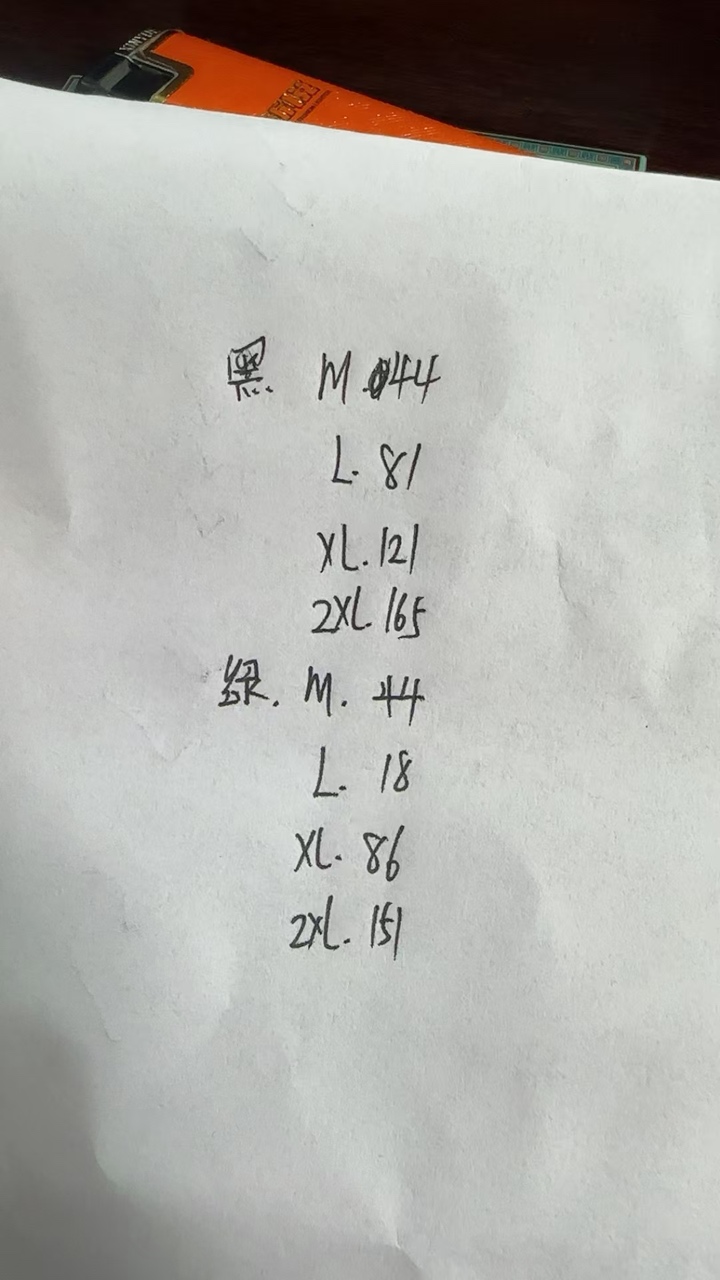 黑. M.044
L. 81
XL. 121
2XL. 165
绿. M. 44
L. 18
XL. 86
2XL. 151